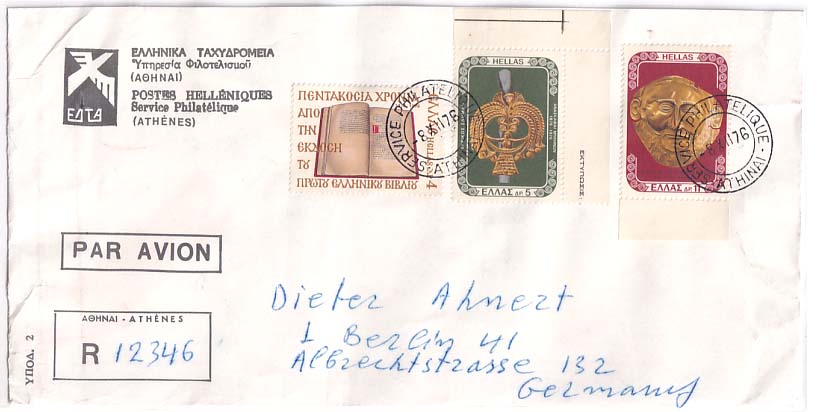 ΕΛΛΗΝΙΚΑ ΤΑΧΥΔΡΟΜΕΙΑ
Ὑπηρεσία Φιλοτελισμοῦ
(ΑΘΗΝΑΙ)
POSTES HELLÉNIQUES
Service Philatélique
(ATHÈNES)
ΕΛΤΑ
ΠΕΝΤΑΚΟΣΙΑ ΧΡΟΝΙΑ
ΑΠΟ
ΤΗΝ
ΕΚΔΟΣΗ
ΤΟΥ
ΠΡΩΤΟΥ ΕΛΛΗΝΙΚΟΥ ΒΙΒΛΙΟΥ
HELLAS
4
HELLAS
ΕΛΛΑΣ ΔΡ. 5
ΕΚΤΥΠΩΣΙΣ
HELLAS
ΕΛΛΑΣ ΔΡ. 11
SERVICE PHILATELIQUE
-8.XII.76
(ATHINAI)
SERVICE PHILATELIQUE
-8.XII.76
ATHINAI
PAR AVION
ΑΘΗΝΑΙ - ATHÈNES
R 12346
ΥΠΟΔ. 2
Dieter Ahnert
1 Berlin 41
Albrechtstrasse 132
Germany